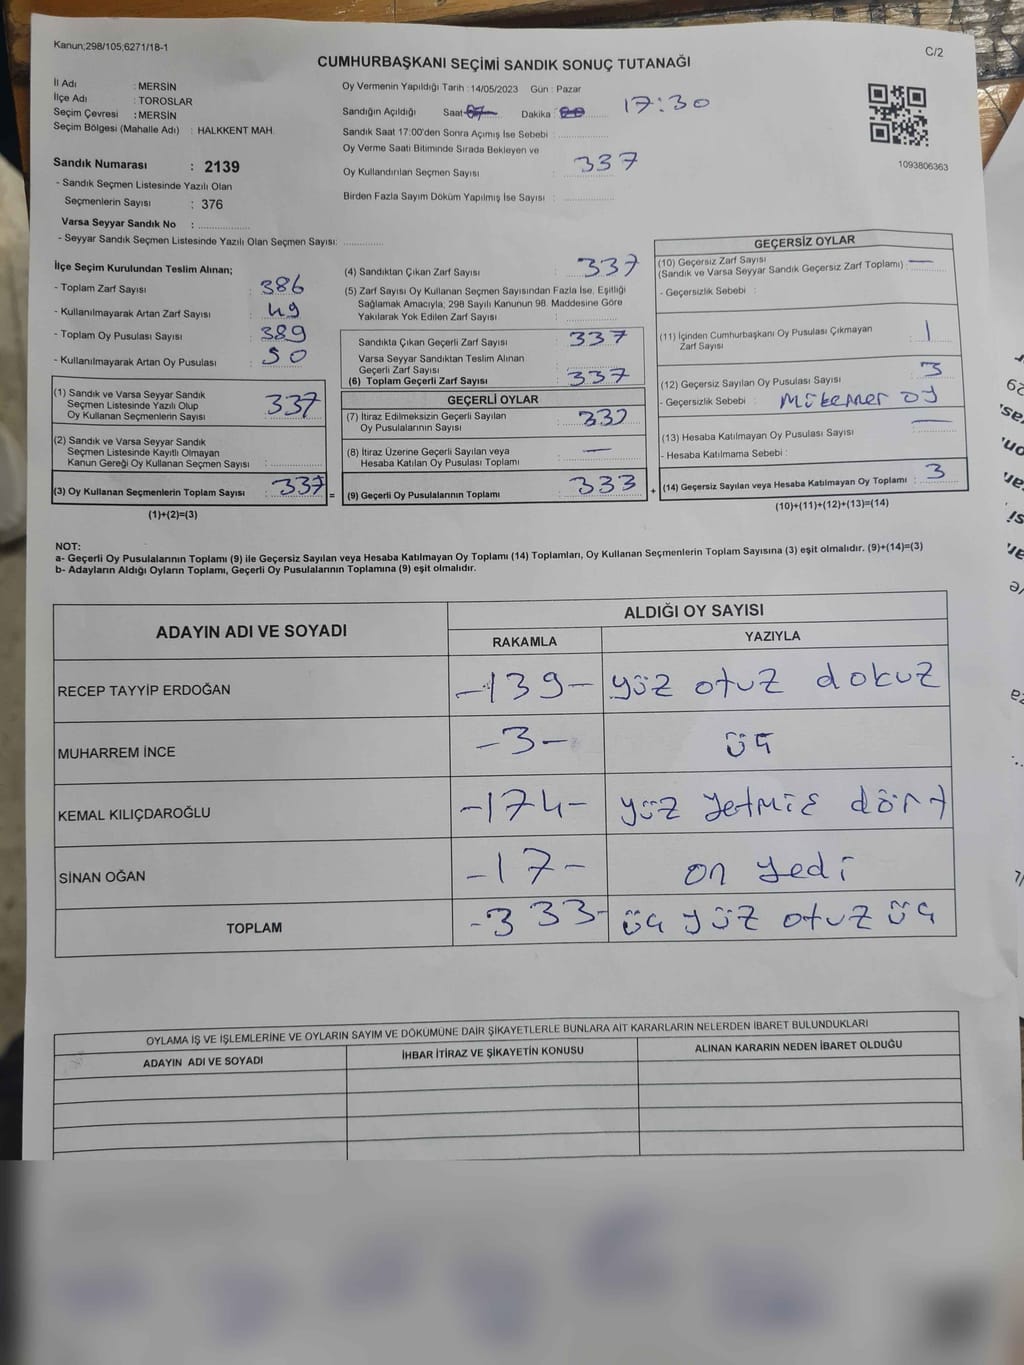 Kanun;298/105;6271/18-1
C/2
CUMHURBAŞKANI SEÇİMİ SANDIK SONUÇ TUTANAĞI
İl Adı : MERSİN
İlçe Adı : TOROSLAR
Seçim Çevresi : MERSİN
Seçim Bölgesi (Mahalle Adı) : HALKKENT MAH.
Sandık Numarası : 2139
- Sandık Seçmen Listesinde Yazılı Olan
Seçmenlerin Sayısı : 376
Varsa Seyyar Sandık No :
- Seyyar Sandık Seçmen Listesinde Yazılı Olan Seçmen Sayısı:
Oy Vermenin Yapıldığı Tarih : 14/05/2023 Gün : Pazar
Sandığın Açıldığı Saat Dakika : 17:30
Sandık Saat 17:00'den Sonra Açımış İse Sebebi :
Oy Verme Saati Bitiminde Sırada Bekleyen ve
Oy Kullandırılan Seçmen Sayısı : 337
Birden Fazla Sayım Döküm Yapılmış İse Sayısı :
1093806363
İlçe Seçim Kurulundan Teslim Alınan;
- Toplam Zarf Sayısı : 386
- Kullanılmayarak Artan Zarf Sayısı : 49
- Toplam Oy Pusulası Sayısı : 389
- Kullanılmayarak Artan Oy Pusulası : 50
(1) Sandık ve Varsa Seyyar Sandık
Seçmen Listesinde Yazılı Olup
Oy Kullanan Seçmenlerin Sayısı : 337
(2) Sandık ve Varsa Seyyar Sandık
Seçmen Listesinde Kayıtlı Olmayan
Kanun Gereği Oy Kullanan Seçmen Sayısı :
(3) Oy Kullanan Seçmenlerin Toplam Sayısı : 337 =
(1)+(2)=(3)
(4) Sandıktan Çıkan Zarf Sayısı : 337
(5) Zarf Sayısı Oy Kullanan Seçmen Sayısından Fazla İse, Eşitliği
Sağlamak Amacıyla; 298 Sayılı Kanunun 98. Maddesine Göre
Yakılarak Yok Edilen Zarf Sayısı :
Sandıkta Çıkan Geçerli Zarf Sayısı : 337
Varsa Seyyar Sandıktan Teslim Alınan
Geçerli Zarf Sayısı :
(6) Toplam Geçerli Zarf Sayısı : 337
GEÇERLİ OYLAR
(7) İtiraz Edilmeksizin Geçerli Sayılan
Oy Pusulalarının Sayısı :
(8) İtiraz Üzerine Geçerli Sayılan veya
Hesaba Katılan Oy Pusulası Toplamı : —
(9) Geçerli Oy Pusulalarının Toplamı : 333 +
GEÇERSİZ OYLAR
(10) Geçersiz Zarf Sayısı
(Sandık ve Varsa Seyyar Sandık Geçersiz Zarf Toplamı) : —
- Geçersizlik Sebebi :
(11) İçinden Cumhurbaşkanı Oy Pusulası Çıkmayan
Zarf Sayısı : 1
(12) Geçersiz Sayılan Oy Pusulası Sayısı : 3
- Geçersizlik Sebebi : Mükerrer oy
(13) Hesaba Katılmayan Oy Pusulası Sayısı : —
- Hesaba Katılmama Sebebi :
(14) Geçersiz Sayılan veya Hesaba Katılmayan Oy Toplamı : 3
(10)+(11)+(12)+(13)=(14)
NOT:
a- Geçerli Oy Pusulalarının Toplamı (9) ile Geçersiz Sayılan veya Hesaba Katılmayan Oy Toplamı (14) Toplamları, Oy Kullanan Seçmenlerin Toplam Sayısına (3) eşit olmalıdır. (9)+(14)=(3)
b- Adayların Aldığı Oyların Toplamı, Geçerli Oy Pusulalarının Toplamına (9) eşit olmalıdır.
ADAYIN ADI VE SOYADI
ALDIĞI OY SAYISI
RAKAMLA YAZIYLA
RECEP TAYYİP ERDOĞAN -139- yüz otuz dokuz
MUHARREM İNCE -3- üç
KEMAL KILIÇDAROĞLU -174- yüz yetmiş dört
SİNAN OĞAN -17- on yedi
TOPLAM -333- üç yüz otuz üç
OYLAMA İŞ VE İŞLEMLERİNE VE OYLARIN SAYIM VE DÖKÜMÜNE DAİR ŞİKAYETLERLE BUNLARA AİT KARARLARIN NELERDEN İBARET BULUNDUKLARI
ADAYIN ADI VE SOYADI İHBAR İTİRAZ VE ŞİKAYETİN KONUSU ALINAN KARARIN NEDEN İBARET OLDUĞU